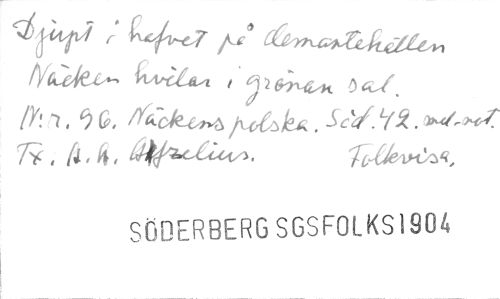 Djupt i hafvet på demantehällen
Näcken hvilar i grönan sal.
N:r. 96. Näckens polska. Sid. 42. med not.
Tx. A. A. Afzelius. Folkvisa.
SÖDERBERG SGSFOLKS1904